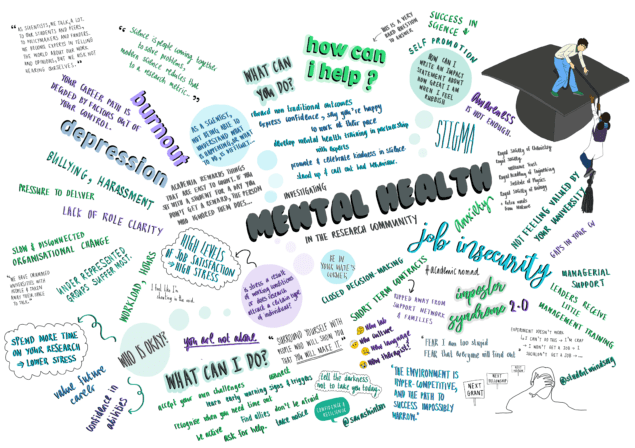 "AS SCIENTISTS, WE TALK A LOT
TO OUR STUDENTS AND PEERS,
TO POLICYMAKERS AND FUNDERS.
WE BECOME EXPERTS IN TELLING
THE WORLD ABOUT OUR WORK
AND OPINIONS, BUT WE RISK NOT
HEARING OURSELVES."
"Science is people coming together
to solve problems,
modern science reduces that
to a research metric."
YOUR CAREER PATH IS
DECIDED BY FACTORS OUT OF
YOUR CONTROL.
burnout
depression
BULLYING, HARASSMENT
PRESSURE TO DELIVER
LACK OF ROLE CLARITY
AS A SCIENTIST,
NOT BEING ABLE TO
UNDERSTAND WHAT
IS HAPPENING, OR WHAT
TO DO, IS DIFFICULT...
ACADEMIA REWARDS THINGS
THAT ARE EASY TO COUNT. IF YOU
SIT WITH A STUDENT FOR A DAY YOU
DON'T GET A REWARD, THE PERSON
WHO IGNORED THEM DOES...
WHAT CAN
YOU DO?
how can
i help?
THIS IS A VERY
HARD QUESTION
TO ANSWER
reward non traditional outcomes
Express confidence, say you're happy
to work at their pace
develop mental health training in partnership
with experts
promote & celebrate kindness in science
stand up & call out bad behaviour.
SUCCESS IN
SCIENCE
SELF PROMOTION
HOW CAN I
WRITE AN IMPACT
STATEMENT ABOUT
HOW GREAT I AM
WHEN I FEEL
RUBBISH
STIGMA
Awareness
IS NOT ENOUGH.
Royal Society of Chemistry
Royal Society
Wellcome Trust
Royal Academy of Engineering
Institute of Physics
Royal Society of Biology
NOT FEELING VALUED BY
YOUR UNIVERSITY
GAPS IN YOUR CV
INVESTIGATING
MENTAL HEALTH
IN THE RESEARCH COMMUNITY
anxiety
job insecurity
MANAGERIAL
SUPPORT
LEADERS RECEIVE
LITTLE
MANAGEMENT TRAINING
SLOW & DISJOINTED
ORGANISATIONAL CHANGE
UNDER REPRESENTED
GROUPS SUFFER MOST.
WORKLOAD, HOURS
HIGH LEVELS
OF JOB SATISFACTION
→ HIGH STRESS
I feel like I'm
IS STRESS A RESULT
OF WORKING CONDITIONS
OR DOES RESEARCH
ATTRACT A CERTAIN TYPE
OF INDIVIDUAL?
CLOSED DECISION-MAKING
SHORT TERM CONTRACTS
#Academic nomad
RIPPED AWAY FROM
SUPPORT NETWORK
& FAMILIES
imposter
syndrome 2.0
"FEAR I am too stupid
FEAR that everyone will find out"
"THE ENVIRONMENT IS
HYPER-COMPETITIVE,
AND THE PATH TO
SUCCESS IMPOSSIBLY
NARROW."
NEXT
GRANT
NEXT
FELLOWSHIP
NEXT
JOB
SPEND MORE TIME
ON YOUR RESEARCH
→ LOWER STRESS
value future
career
confidence in
abilities
WHO IS OKAY?
you are not alone.
WHAT CAN I DO?
accept your own challenges
recognise when you need time out
be active
connect
learn early warning signs & triggers
find allies
ask for help.
don't be afraid
take notice
"SURROUND YOURSELF WITH
PEOPLE WHO WILL SHOW YOU
THAT YOU WILL MAKE IT."
tell the darkness
not to take you today.
CONFIDENCE &
RESILIENCE